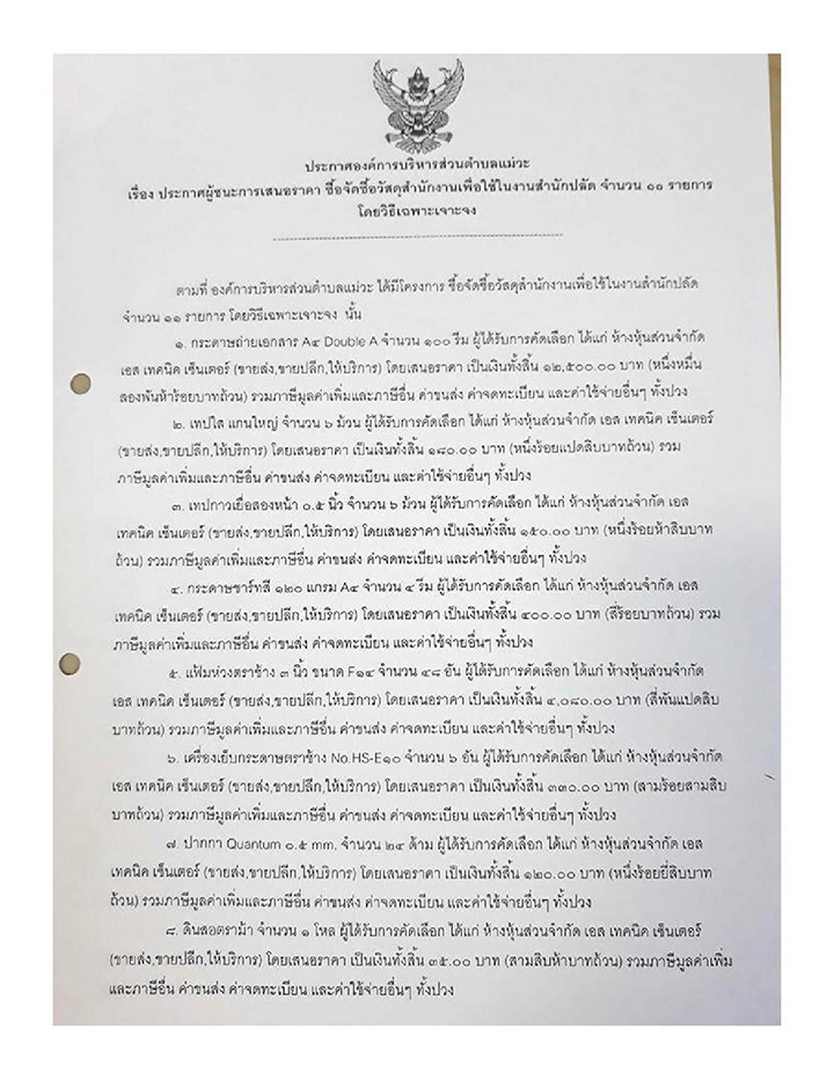 ประกาศองค์การบริหารส่วนตำบลแม่วะ
เรื่อง ประกาศผู้ชนะการเสนอราคา ซื้อจัดซื้อวัสดุสำนักงานเพื่อใช้ในงานสำนักปลัด จำนวน ๑๑ รายการ
โดยวิธีเฉพาะเจาะจง
ตามที่ องค์การบริหารส่วนตำบลแม่วะ ได้มีโครงการ ซื้อจัดซื้อวัสดุสำนักงานเพื่อใช้ในงานสำนักปลัด
จำนวน ๑๑ รายการ โดยวิธีเฉพาะเจาะจง นั้น
๑. กระดาษถ่ายเอกสาร A๔ Double A จำนวน ๑๐๐ รีม ผู้ได้รับการคัดเลือก ได้แก่ ห้างหุ้นส่วนจำกัด
เอส เทคนิค เซ็นเตอร์ (ขายส่ง,ขายปลีก,ให้บริการ) โดยเสนอราคา เป็นเงินทั้งสิ้น ๑๒,๕๐๐.๐๐ บาท (หนึ่งหมื่น
สองพันห้าร้อยบาทถ้วน) รวมภาษีมูลค่าเพิ่มและภาษีอื่น ค่าขนส่ง ค่าจดทะเบียน และค่าใช้จ่ายอื่นๆ ทั้งปวง
๒. เทปใส แกนใหญ่ จำนวน ๖ ม้วน ผู้ได้รับการคัดเลือก ได้แก่ ห้างหุ้นส่วนจำกัด เอส เทคนิค เซ็นเตอร์
(ขายส่ง,ขายปลีก,ให้บริการ) โดยเสนอราคา เป็นเงินทั้งสิ้น ๑๘๐.๐๐ บาท (หนึ่งร้อยแปดสิบบาทถ้วน) รวม
ภาษีมูลค่าเพิ่มและภาษีอื่น ค่าขนส่ง ค่าจดทะเบียน และค่าใช้จ่ายอื่นๆ ทั้งปวง
๓. เทปกาวเยื่อสองหน้า ๐.๕ นิ้ว จำนวน ๖ ม้วน ผู้ได้รับการคัดเลือก ได้แก่ ห้างหุ้นส่วนจำกัด เอส
เทคนิค เซ็นเตอร์ (ขายส่ง,ขายปลีก,ให้บริการ) โดยเสนอราคา เป็นเงินทั้งสิ้น ๑๕๐.๐๐ บาท (หนึ่งร้อยห้าสิบบาท
ถ้วน) รวมภาษีมูลค่าเพิ่มและภาษีอื่น ค่าขนส่ง ค่าจดทะเบียน และค่าใช้จ่ายอื่นๆ ทั้งปวง
๔. กระดาษชาร์ทสี ๑๒๐ แกรม A๔ จำนวน ๔ รีม ผู้ได้รับการคัดเลือก ได้แก่ ห้างหุ้นส่วนจำกัด เอส
เทคนิค เซ็นเตอร์ (ขายส่ง,ขายปลีก,ให้บริการ) โดยเสนอราคา เป็นเงินทั้งสิ้น ๔๐๐.๐๐ บาท (สี่ร้อยบาทถ้วน) รวม
ภาษีมูลค่าเพิ่มและภาษีอื่น ค่าขนส่ง ค่าจดทะเบียน และค่าใช้จ่ายอื่นๆ ทั้งปวง
๕. แฟ้มห่วงตราช้าง ๓ นิ้ว ขนาด F๑๔ จำนวน ๔๘ อัน ผู้ได้รับการคัดเลือก ได้แก่ ห้างหุ้นส่วนจำกัด
เอส เทคนิค เซ็นเตอร์ (ขายส่ง,ขายปลีก,ให้บริการ) โดยเสนอราคา เป็นเงินทั้งสิ้น ๔,๐๘๐.๐๐ บาท (สี่พันแปดสิบ
บาทถ้วน) รวมภาษีมูลค่าเพิ่มและภาษีอื่น ค่าขนส่ง ค่าจดทะเบียน และค่าใช้จ่ายอื่นๆ ทั้งปวง
๖. เครื่องเย็บกระดาษตราช้าง No.HS-E๑๐ จำนวน ๖ อัน ผู้ได้รับการคัดเลือก ได้แก่ ห้างหุ้นส่วนจำกัด
เอส เทคนิค เซ็นเตอร์ (ขายส่ง,ขายปลีก,ให้บริการ) โดยเสนอราคา เป็นเงินทั้งสิ้น ๓๓๐.๐๐ บาท (สามร้อยสามสิบ
บาทถ้วน) รวมภาษีมูลค่าเพิ่มและภาษีอื่น ค่าขนส่ง ค่าจดทะเบียน และค่าใช้จ่ายอื่นๆ ทั้งปวง
๗. ปากกา Quantum ๐.๕ mm. จำนวน ๒๔ ด้าม ผู้ได้รับการคัดเลือก ได้แก่ ห้างหุ้นส่วนจำกัด เอส
เทคนิค เซ็นเตอร์ (ขายส่ง,ขายปลีก,ให้บริการ) โดยเสนอราคา เป็นเงินทั้งสิ้น ๑๒๐.๐๐ บาท (หนึ่งร้อยยี่สิบบาท
ถ้วน) รวมภาษีมูลค่าเพิ่มและภาษีอื่น ค่าขนส่ง ค่าจดทะเบียน และค่าใช้จ่ายอื่นๆ ทั้งปวง
๘. ดินสอตราม้า จำนวน ๑ โหล ผู้ได้รับการคัดเลือก ได้แก่ ห้างหุ้นส่วนจำกัด เอส เทคนิค เซ็นเตอร์
(ขายส่ง,ขายปลีก,ให้บริการ) โดยเสนอราคา เป็นเงินทั้งสิ้น ๓๕.๐๐ บาท (สามสิบห้าบาทถ้วน) รวมภาษีมูลค่าเพิ่ม
และภาษีอื่น ค่าขนส่ง ค่าจดทะเบียน และค่าใช้จ่ายอื่นๆ ทั้งปวง